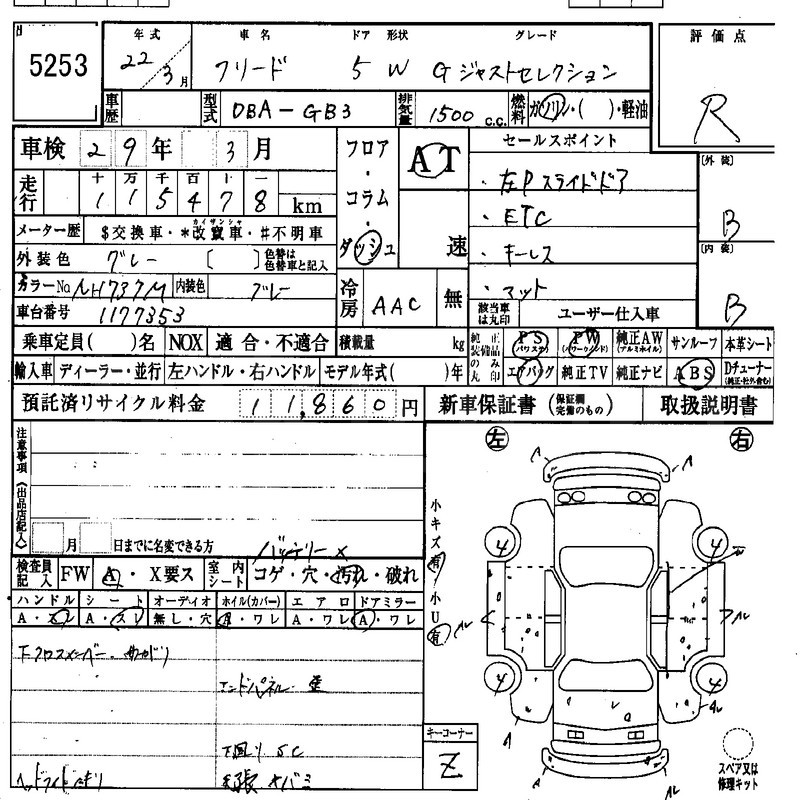 5253
年式 車名 ドア 形状 グレード 評価点
22/3月 フリード 5 W Gジャストセレクション R
車歴 型式 DBA-GB3 排気量 1500 c.c. 燃料 ガソリン・( )・軽油
車検 29年 3月 フロア・コラム・ダッシュ AT 速
セールスポイント
・左Pスライドドア
・ETC
・キーレス
・マット
[外装] B
[内装] B
走行 十万千百十一
115478 km
メーター歴 $交換車・*改竄車・#不明車
カイザンシャ
外装色 グレー [ ] 色替は色替車と記入
カラーNo. NH737M 内装色 グレー
車台番号 1177353
冷房 AAC 無
該当車は丸印 ユーザー仕入車
乗車定員( )名 NOX 適合・不適合 積載量 kg
輸入車 ディーラー・並行 左ハンドル・右ハンドル モデル年式( )年
純正装備品のみ丸印 PS(パワステ) PW(パワーウインド) 純正AW(アルミホイル) サンルーフ 本革シート
エアバッグ 純正TV 純正ナビ ABS Dチューナー(純正・社外含む)
預託済リサイクル料金 11,860円 新車保証書(保証欄完備のもの) 取扱説明書
注意事項《出品店記入》
月 日までに名変できる方
バッテリー×
左 右
小キズ有 小U有
検査員記入 FW A・X要ス 室内シート コゲ・穴・汚れ・破れ
ハンドル シート オーディオ ホイル(カバー) エアロ ドアミラー
A・スレ A・スレ 無し・穴 A・ワレ A・ワレ A・ワレ
下クロスメンバー
エンドパネル
下回り SC
4 4
4 4
キーコーナー
Z
スペア又は修理キット